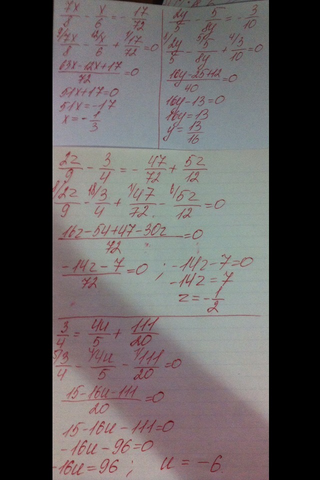 7x/8 - x/6 = -17/72
7x/8 - x/6 + 17/72 = 0
(63x-12x+17)/72 = 0
51x+17=0
51x=-17
x=-1/3
2y/5 - 5/8 = -3/10
2y/5 - 5/8y + 3/10 = 0
(16y-25+12)/40 = 0
16y-13=0
16y=13
y=13/16
2z/9 - 3/4 = -47/72 + 5z/12
2z/9 - 3/4 + 47/72 - 5z/12 = 0
(16z-54+47-30z)/72 = 0
(-14z-7)/72 = 0 ; -14z-7=0
-14z=7
z=-1/2
3/4 = 4u/5 + 111/20
3/4 - 4u/5 - 111/20 = 0
(15-16u-111)/20 = 0
15-16u-111=0
-16u-96=0
-16u=96 ; u=-6